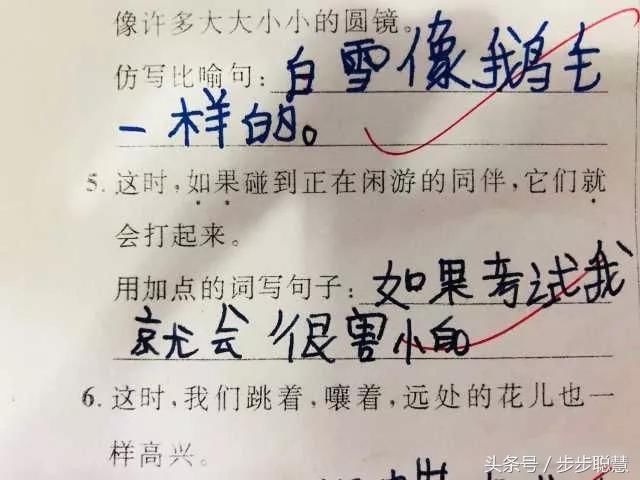 像许多大大小小的圆镜。
仿写比喻句：白雪像鹅毛
一样的。
5. 这时，如果碰到正在闲游的同伴，它们就
会打起来。
用加点的词写句子：如果考试我
就会很害小的
6. 这时，我们跳着，嚷着，远处的花儿也一
样高兴。
头条号／步步聪慧